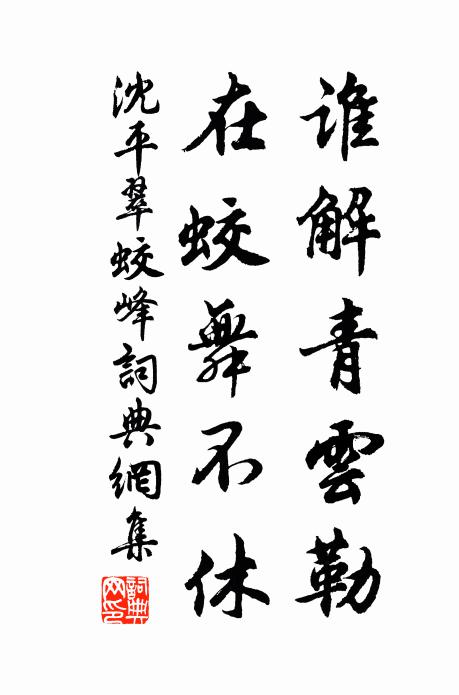 谁解青雲勒
在蛟舞不休
沈平翠蛟峰詞典網集
詞典
网印